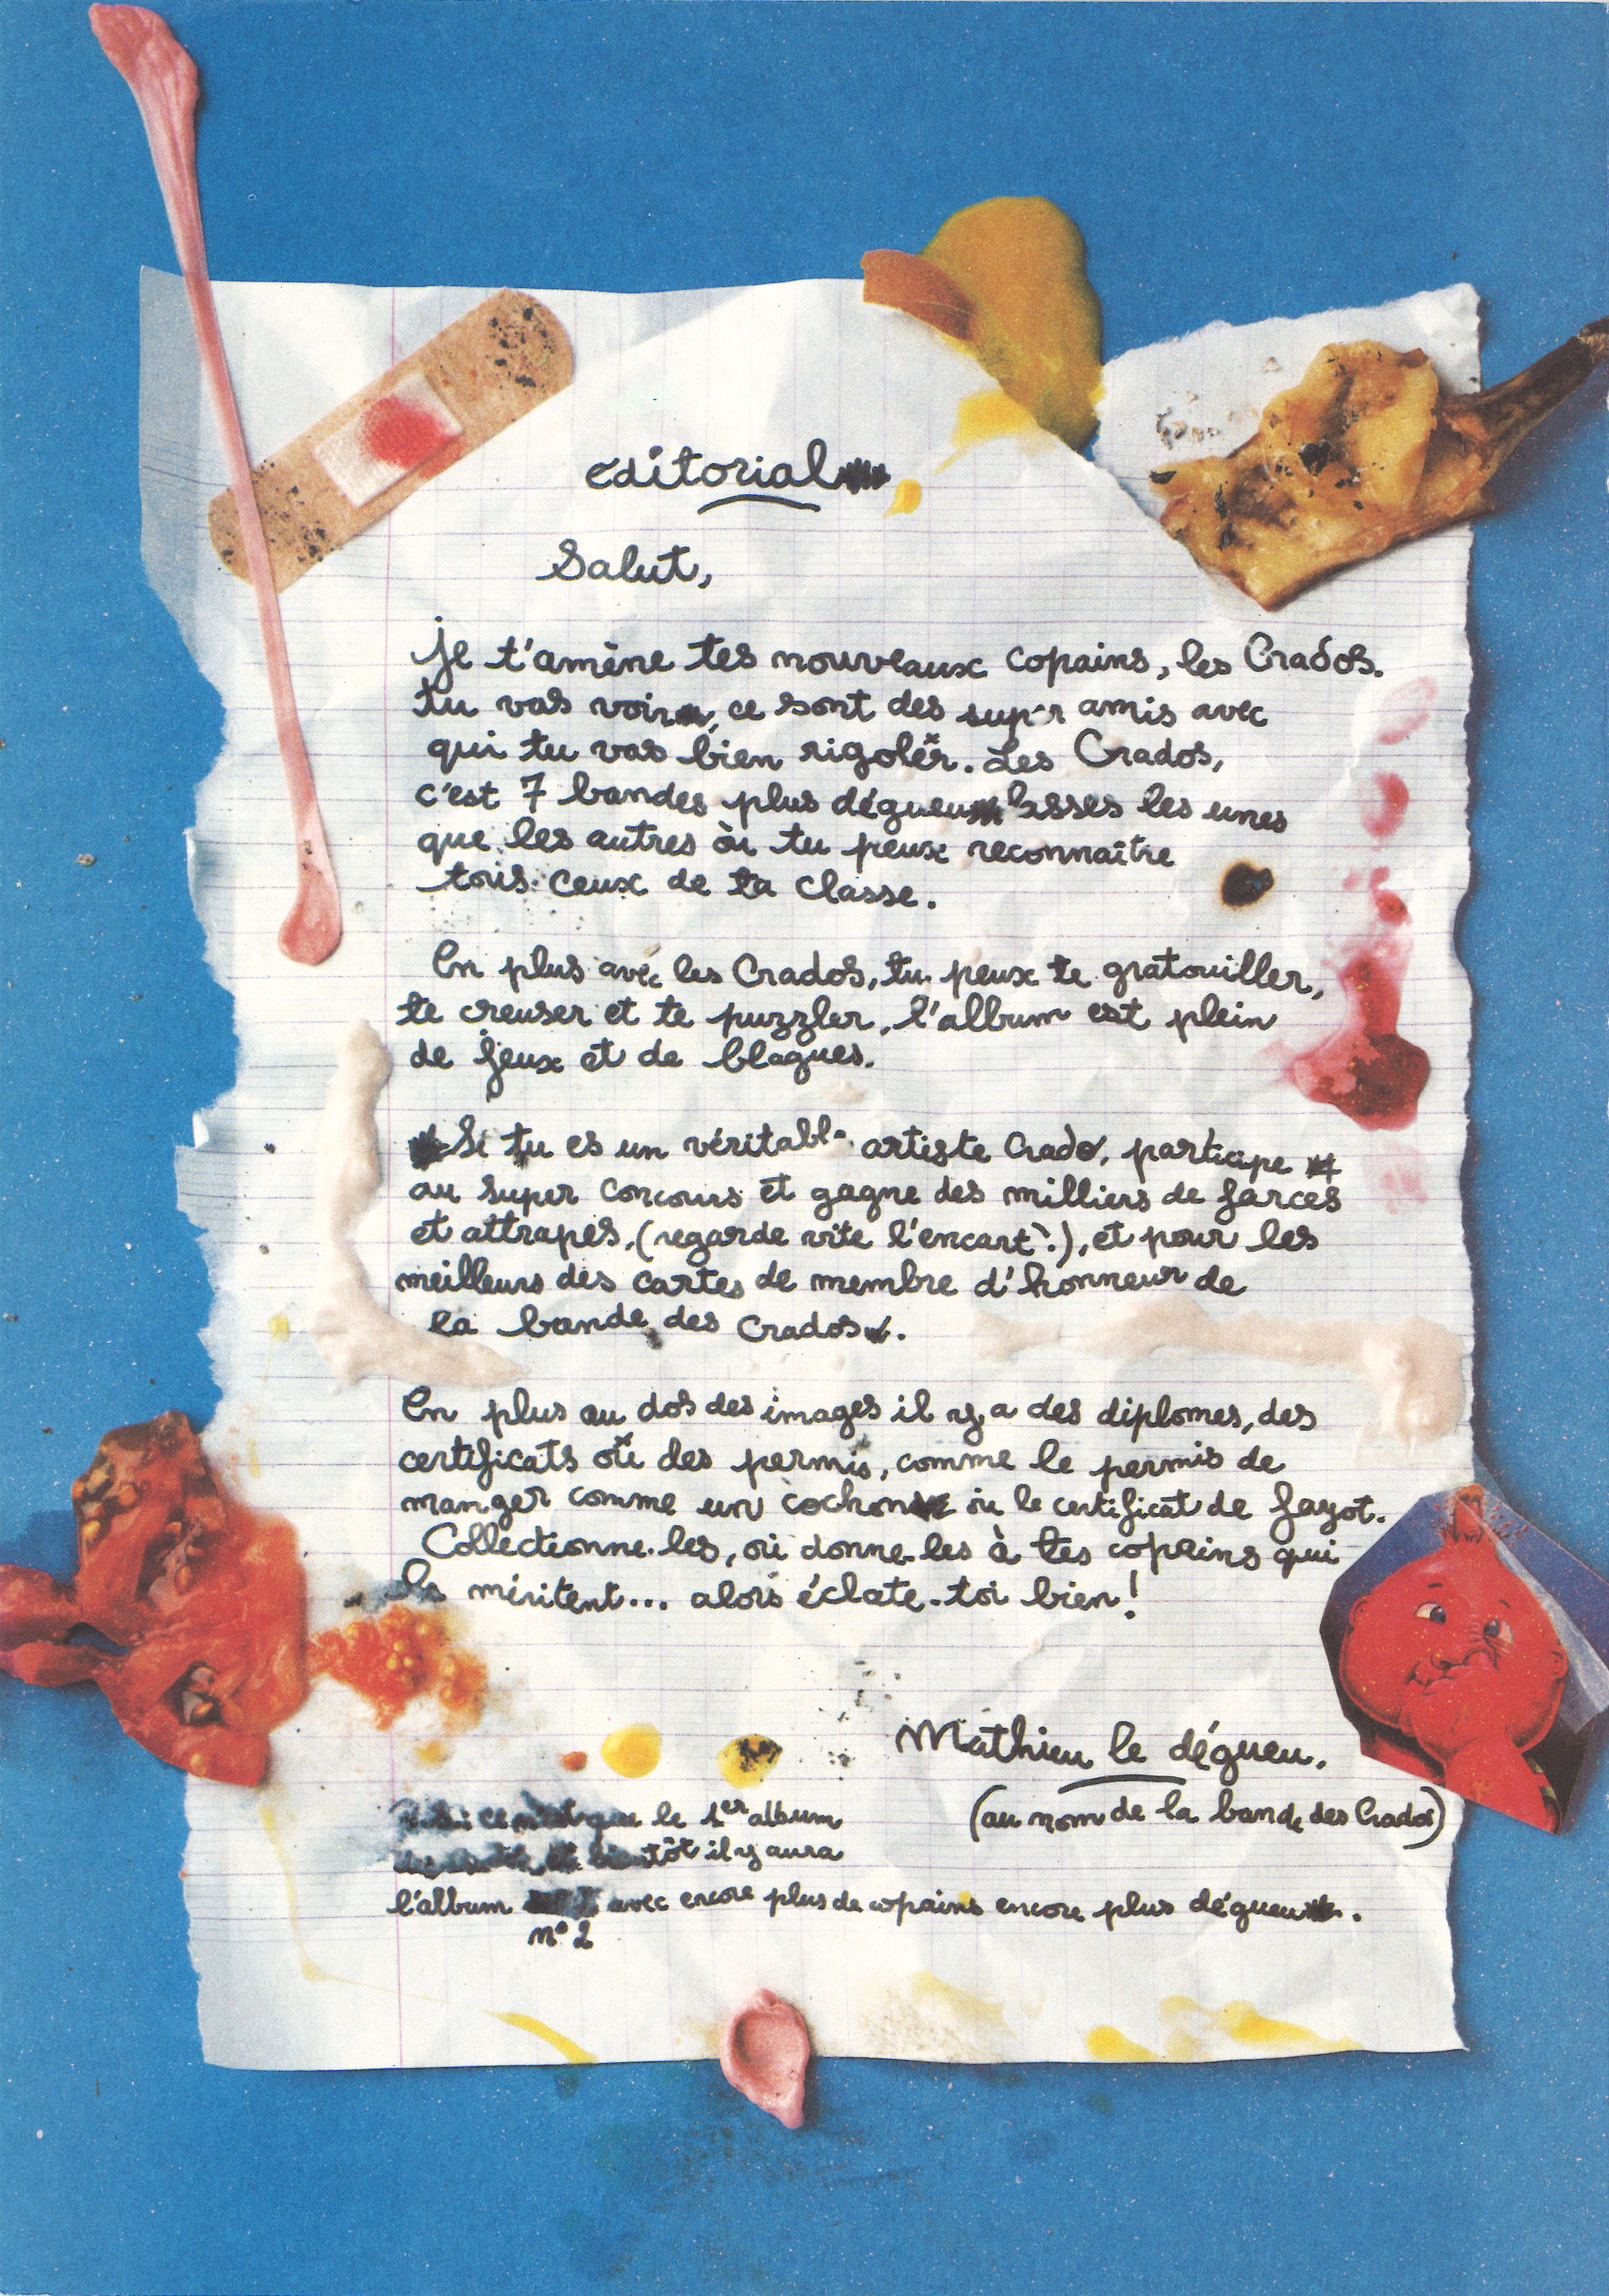 editorial
Salut,
je t'amène tes nouveaux copains, les Crados.
tu vas voir, ce sont des super amis avec
qui tu vas bien rigoler. Les Crados,
c'est 7 bandes plus dégueu lasses les unes
que les autres où tu peux reconnaître
tous ceux de ta classe.
En plus avec les Crados, tu peux te gratouiller,
te creuser et te puzzler, l'album est plein
de jeux et de blagues.
Si tu es un véritable artiste Crado, participe
au super concours et gagne des milliers de farces
et attrapes, (regarde vite l'encart!), et pour les
meilleurs des cartes de membre d'honneur de
la bande des Crados.
En plus au dos des images il y a des diplomes, des
certificats ou des permis, comme le permis de
manger comme un cochon ou le certificat de fayot.
Collectionne-les, ou donne-les à tes copains qui
les méritent... alors éclate-toi bien!
Mathieu le dégueu.
(au nom de la bande des Crados)
ce n'est que le 1er album
bientôt il y aura
l'album n° 2 avec encore plus de copains encore plus dégueu.